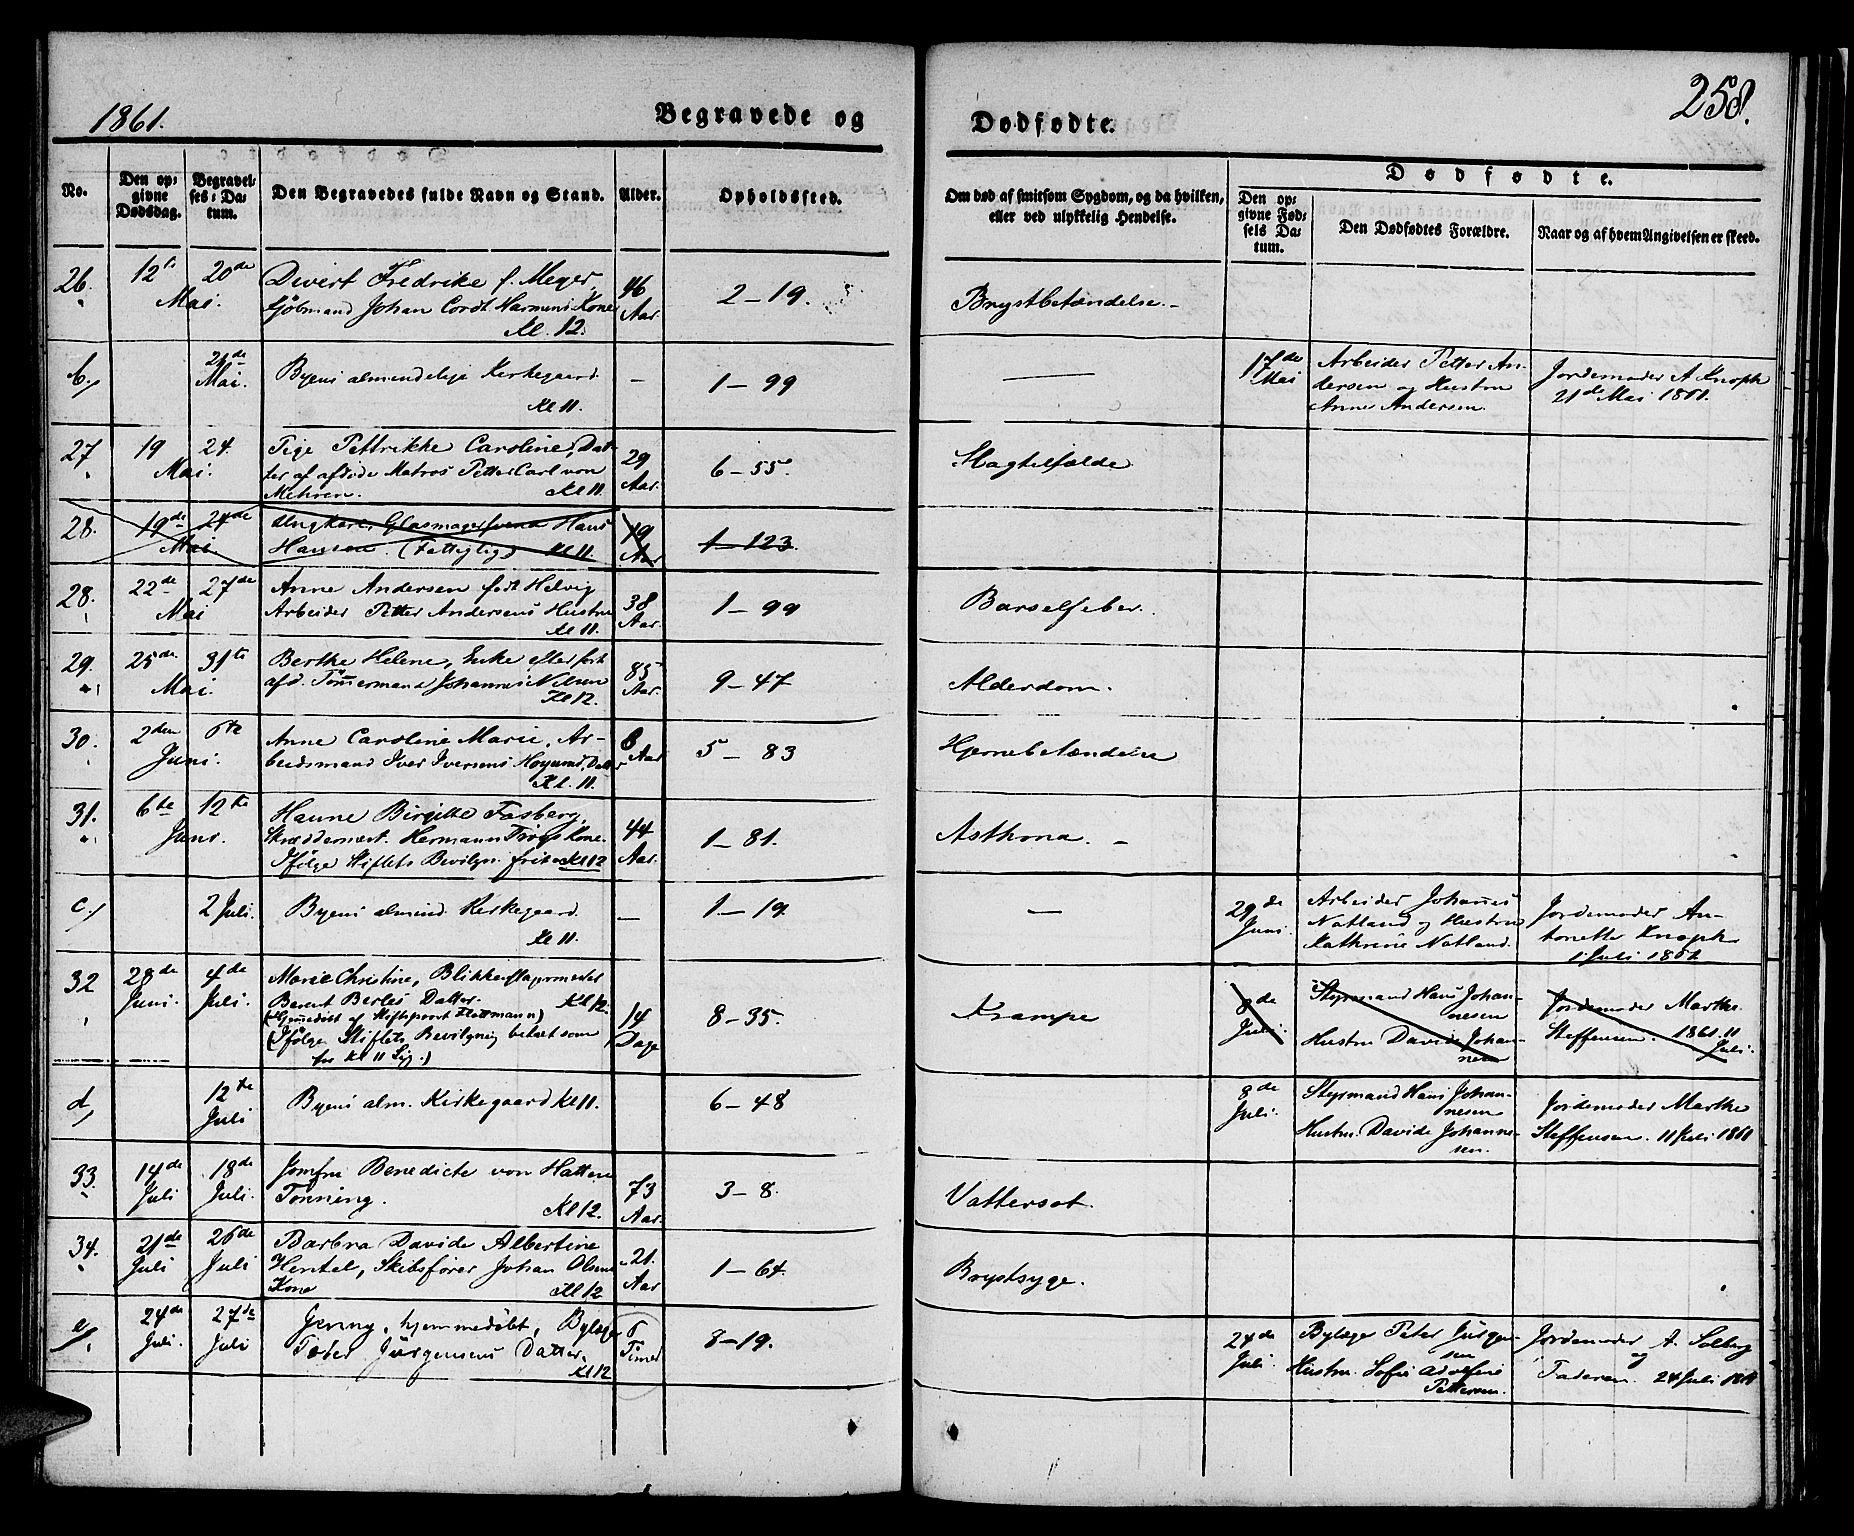 1861.
Begravede og
Dødfødte.
258.
No.
Den opgivne Dødsdag.
Begravelses-Datum.
Den Begravedes fulde Navn og Stand.
Alder.
Opholdssted.
Om død af smitsom Sygdom, og da hvilken,
eller ved ulykkelig Hendelse.
Dødfødte.
Den opgivne Fødsels Datum.
Den Dødfødtes Forældre.
Naar og af hvem Angivelsen er skeed.
26. 12te 20de Mai.
Divert Fredrike f. Meyer,
Johan Cordt Harmens Kone
Kl. 12.
46 Aar.
2 – 19.
Brystbetændelse. –
b.,
21de Mai.
Byens almindelige Kirkegaard
Kl 11.
–
1 – 99
17de Mai
Arbeider Petter An-
dersen og Hustru
Anne Andersen.
Jordemoder A Knoph
21de Mai 1861.
27 19 24. Mai.
Petrikke Caroline, Dat-
ter af afdøde Matros Petter Carl von
Mehren. Kl 11.
29 Aar.
6 – 55.
Slagtilfælde
28. 19de 24de Mai
Glasmagersvend Hans
Hansen. (Fattiglig) Kl 11.
19 Aar
1 – 123.
28. 22de 27de Mai
Anne Andersen født Helvig
Arbeider Petter Andersens Hustru
Kl 11.
38 Aar.
1 – 99
Barselfeber.
29. 25de 31te Mai.
Berthe Helene, Enke efter
afd. Tømmermand Johannes Nilsen
Kl 12.
85 Aar.
9 – 47
Alderdom.
30. 2den 6te Juni.
Anne Caroline Marie, Ar-
beidsmand Iver Iversens Datter
Kl. 11.
6 Aar
5 – 83
Hjernebetændelse
31. 6te 12te Juni.
Hanne Birgitte Fasberg,
Skræddermest. Hermann Kone.
Ifølge Stiftets Bevilgn. Kl 12
44 Aar.
1 – 81.
Asthma. –
c.,
2 Juli.
Byens almind. Kirkegaard
Kl 11.
–
1 – 19
–
29de Juni.
Arbeider Johannes
Natland og Hustru
Kathrine Natland.
Jordemoder An-
tonette Knoph
1 Juli 1861
32 28de Juni. 4de Juli.
Marie Christine, Blikkenslagermester
Berent Berles Datter. Kl 12.
(Hjemmedøbt af Stiftsprovst Flottmann)
(Ifølge Stiftets Bevilgning betalt som
for Kl 11 Lig.)
14 Dage
8 – 35.
Krampe
8de Juli.
Styrmand Hans Johan-
nesen
Hustru Davide Johan-
nesen
Jordemoder Marthe
Steffensen. 1861. 11
Juli.
d,
12te Juli
Byens alm. Kirkegaard Kl 11.
6 – 48
8de Juli.
Styrmand Hans Johan-
nesen
Hustru. Davide Johanne-
sen.
Jordemoder Marthe
Steffensen. 11 Juli 1861
33. 14de Juli 18de Juli.
Jomfru Benedicte von Hatten
Tønning.
Kl 12.
73 Aar.
3 – 8.
Vattersot.
34. 21de Juli 26de Juli
Barbra Davide Albertine
Hentel, Skibsfører Johan Olsens
Kone Kl 12
21. Aar
1 – 64.
Brystsyge.
e,
24de Juli. 27de Juli
Jenny, hjemmedøbt, Bylæge
Peter Jürgensens Datter.
Kl 12
6 Timer
8 – 19.
24de Juli.
Bylæge Peter Jürgen-
sen
Hustru. Sofie Adolfine
Pettersen.
Jordemoder A. Solberg
og
Faderen. 24 Juli 1861